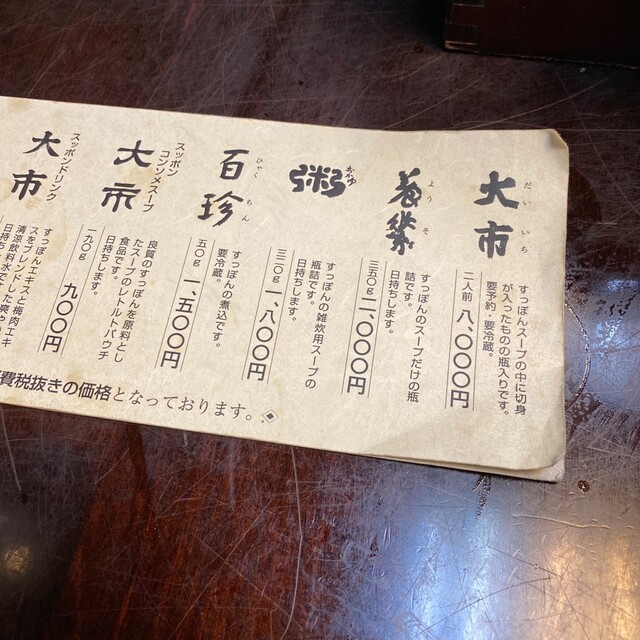 だいいち
大市
すっぽんスープの中に切身
が入ったものの瓶入りです。
要予約、要冷蔵。
二人前 八、〇〇〇円
ようそ
すっぽんのスープだけの瓶
詰です。
日持ちします。
三五〇g 二、〇〇〇円
おかゆ
粥
すっぽんの雑炊用スープの
瓶詰です。
日持ちします。
三二〇g 一、八〇〇円
ひゃくちん
百珍
すっぽんの煮込です。
要冷蔵。
五〇g 一、五〇〇円
スッポン
コンソメスープ
大市
良質のすっぽんを原料とし
たスープのレトルトパウチ
食品です。
日持ちします。
一九〇g 九〇〇円
スッポンドリンク
大市
すっぽんエキスと梅肉エキ
スをブレンドした爽やかな
清涼飲料水です。
日持ち
費税抜きの価格となっております。